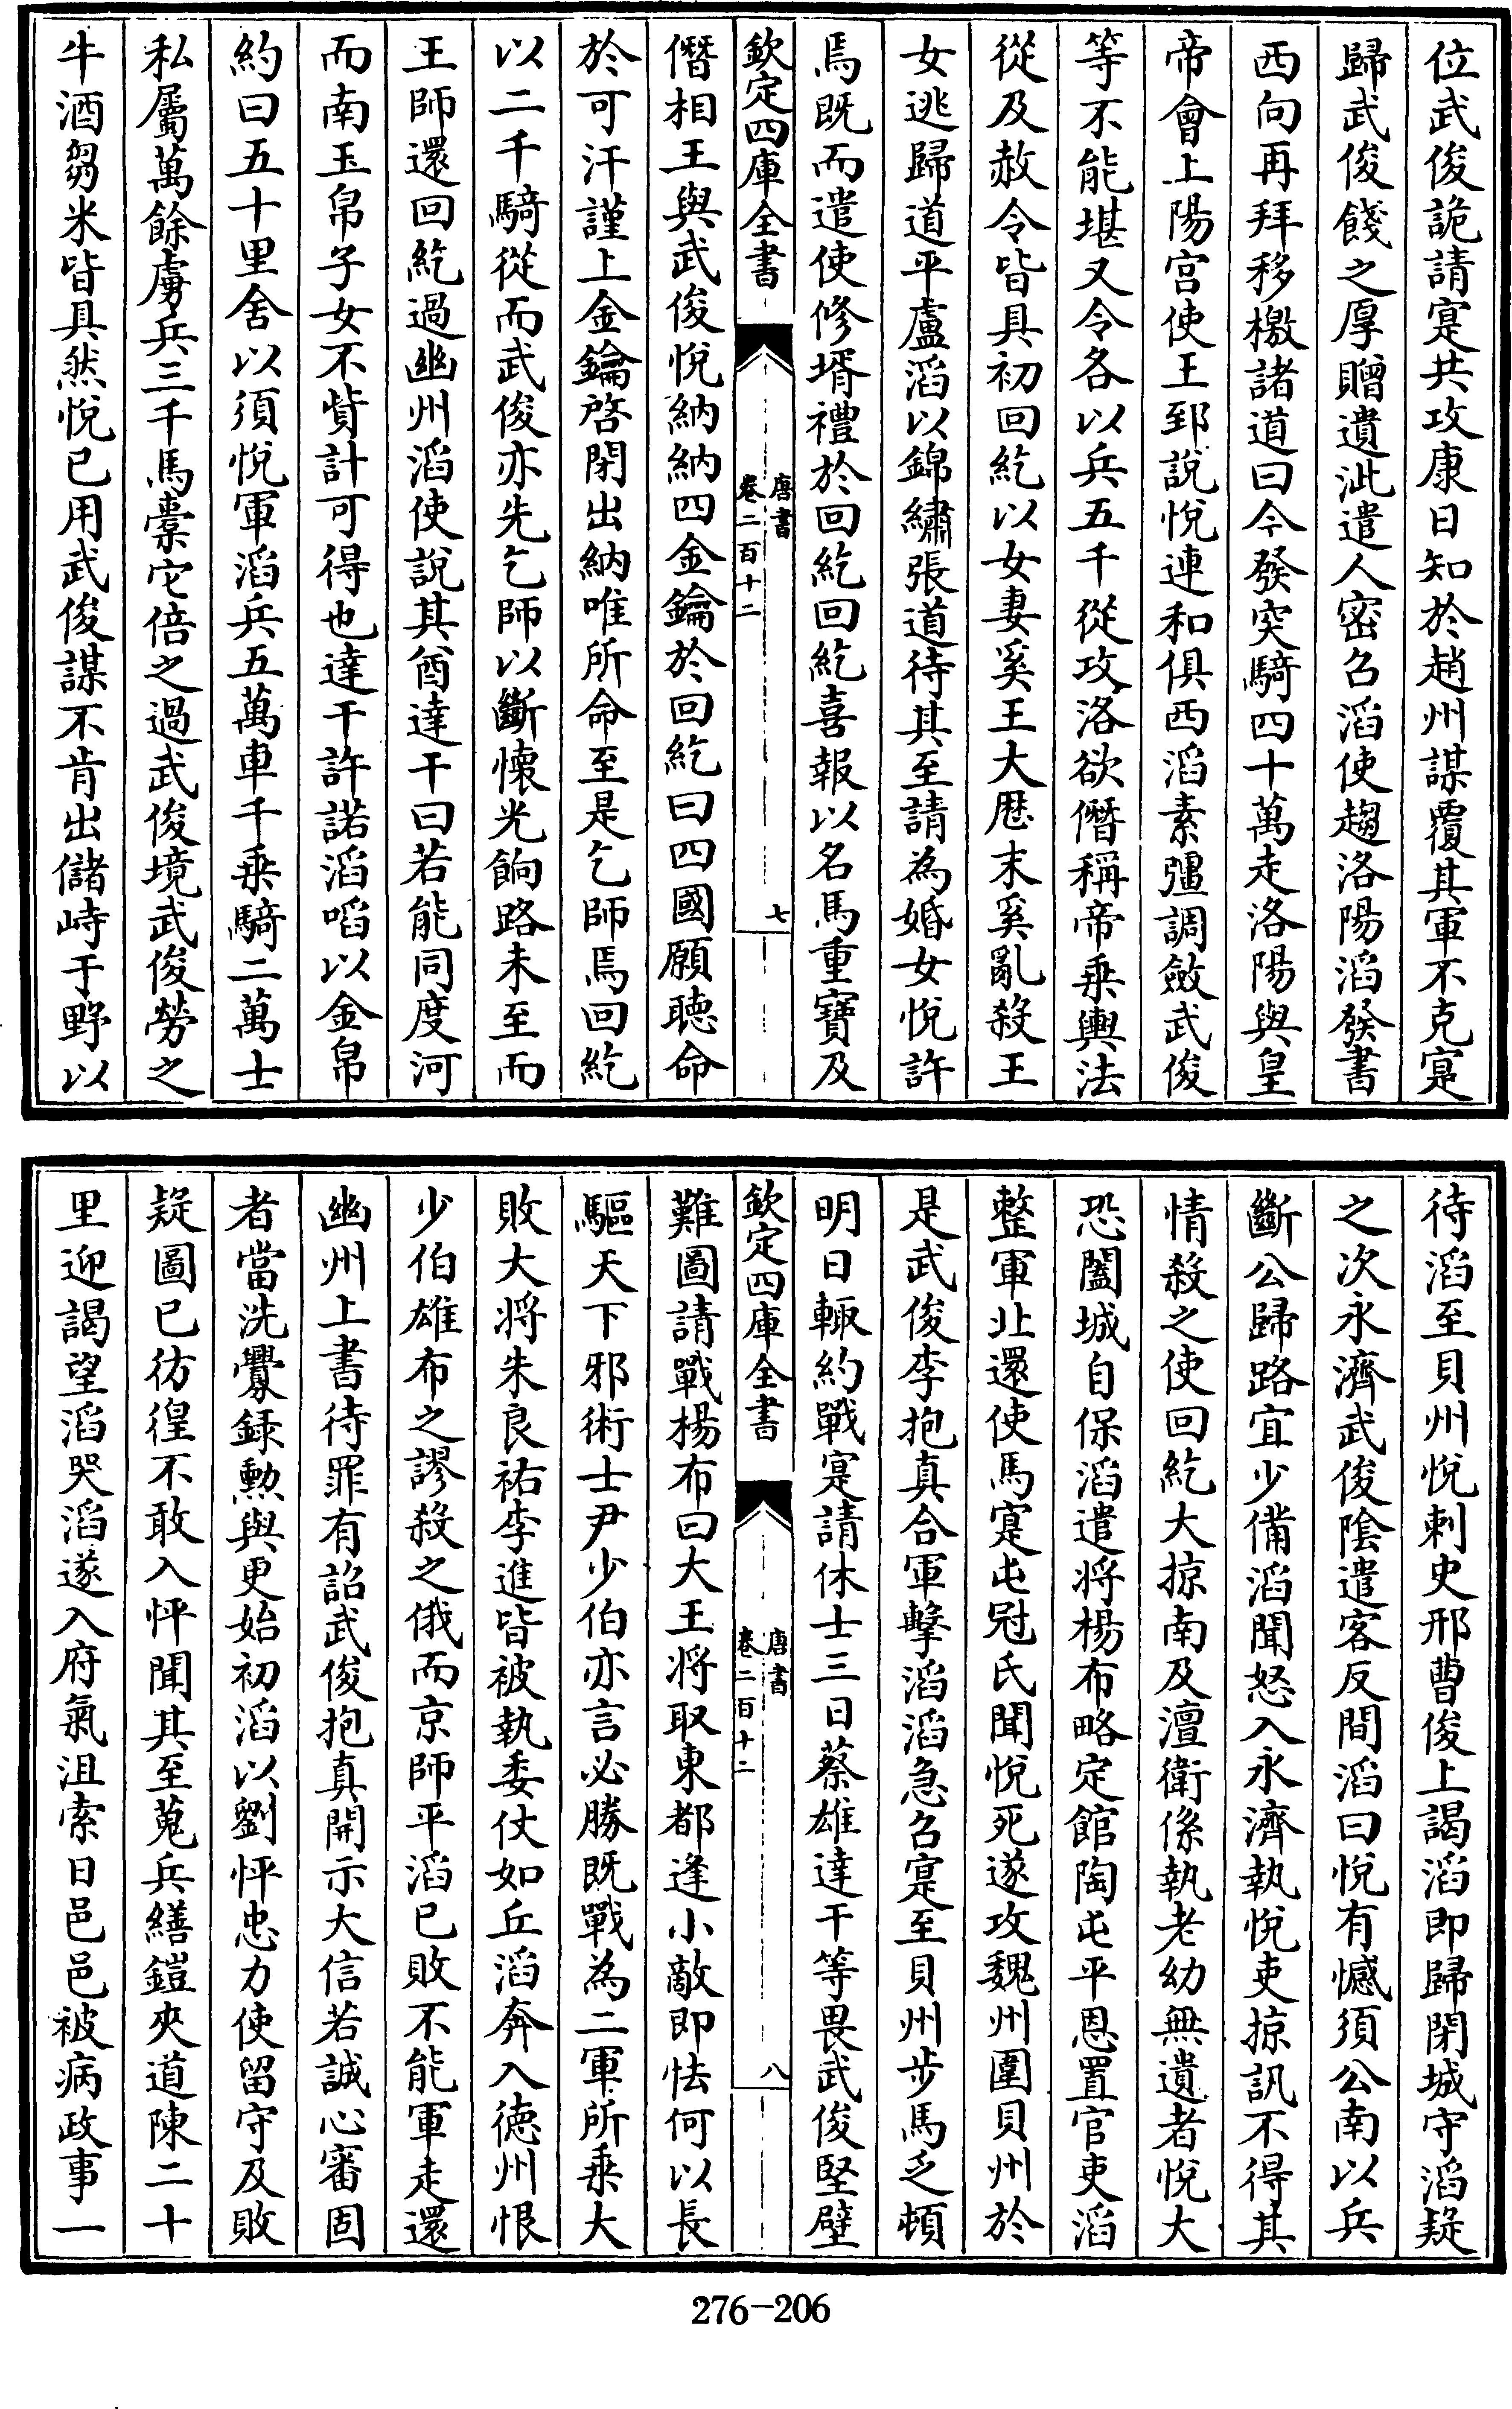 位武俊詭請寔共攻康日知於趙州謀覆其軍不克寔
歸武俊餞之厚贈遺泚遣人密召滔使趨洛陽滔發書
西向再拜移檄諸道曰今發突騎四十萬走洛陽與皇
帝會上陽宫使王郅說悅連和俱西滔素彊調斂武俊
等不能堪又令各以兵五千從攻洛欲僭稱帝乗輿法
從及赦令皆具初回紇以女妻奚王大厯末奚亂殺王
女逃歸道平盧滔以錦繡張道待其至請為婚女悅許
焉既而遣使修壻禮於回紇回紇喜報以名馬重寶及
欽定四庫全書
唐書
卷二百十二
七
僭相王與武俊悅納納四金鑰於回紇曰四國願聽命
於可汗謹上金鑰啓閉出納唯所命至是乞師焉回紇
以二千騎從而武俊亦先乞師以斷懷光餉路未至而
王師還回紇過幽州滔使說其酋達干曰若能同度河
而南玉帛子女不貲計可得也達干許諾滔啗以金帛
約曰五十里舍以須悅軍滔兵五萬車千乗騎二萬士
私屬萬餘虜兵三千馬橐它倍之過武俊境武俊勞之
牛酒芻米皆具然悅已用武俊謀不肯出儲峙于野以
待滔至貝州悅刺史邢曹俊上謁滔即歸閉城守滔疑
之次永濟武俊陰遣客反間滔曰悅有憾須公南以兵
斷公歸路宜少備滔聞怒入永濟執悅吏掠訊不得其
情殺之使回紇大掠南及澶衛係執老幼無遺者悅大
恐闔城自保滔遣将楊布略定館陶屯平恩置官吏滔
整軍北還使馬寔屯冠氏聞悅死遂攻魏州圍貝州於
是武俊李抱真合軍擊滔滔急召寔至貝州步馬乏頓
明日輒約戰寔請休士三日蔡雄達干等畏武俊堅壁
欽定四庫全書
唐書
卷二百十二
八
難圖請戰楊布曰大王将取東都逢小敵即怯何以長
驅天下邪術士尹少伯亦言必勝既戰為二軍所乗大
敗大将朱良祐李進皆被執委仗如丘滔奔入德州恨
少伯雄布之謬殺之俄而京師平滔已敗不能軍走還
幽州上書待罪有詔武俊抱真開示大信若誠心審固
者當洗釁録勲與更始初滔以劉怦忠力使留守及敗
疑圖已彷徨不敢入怦聞其至蒐兵繕鎧夾道陳二十
里迎謁望滔哭滔遂入府氣沮索日邑邑被病政事一
276-206